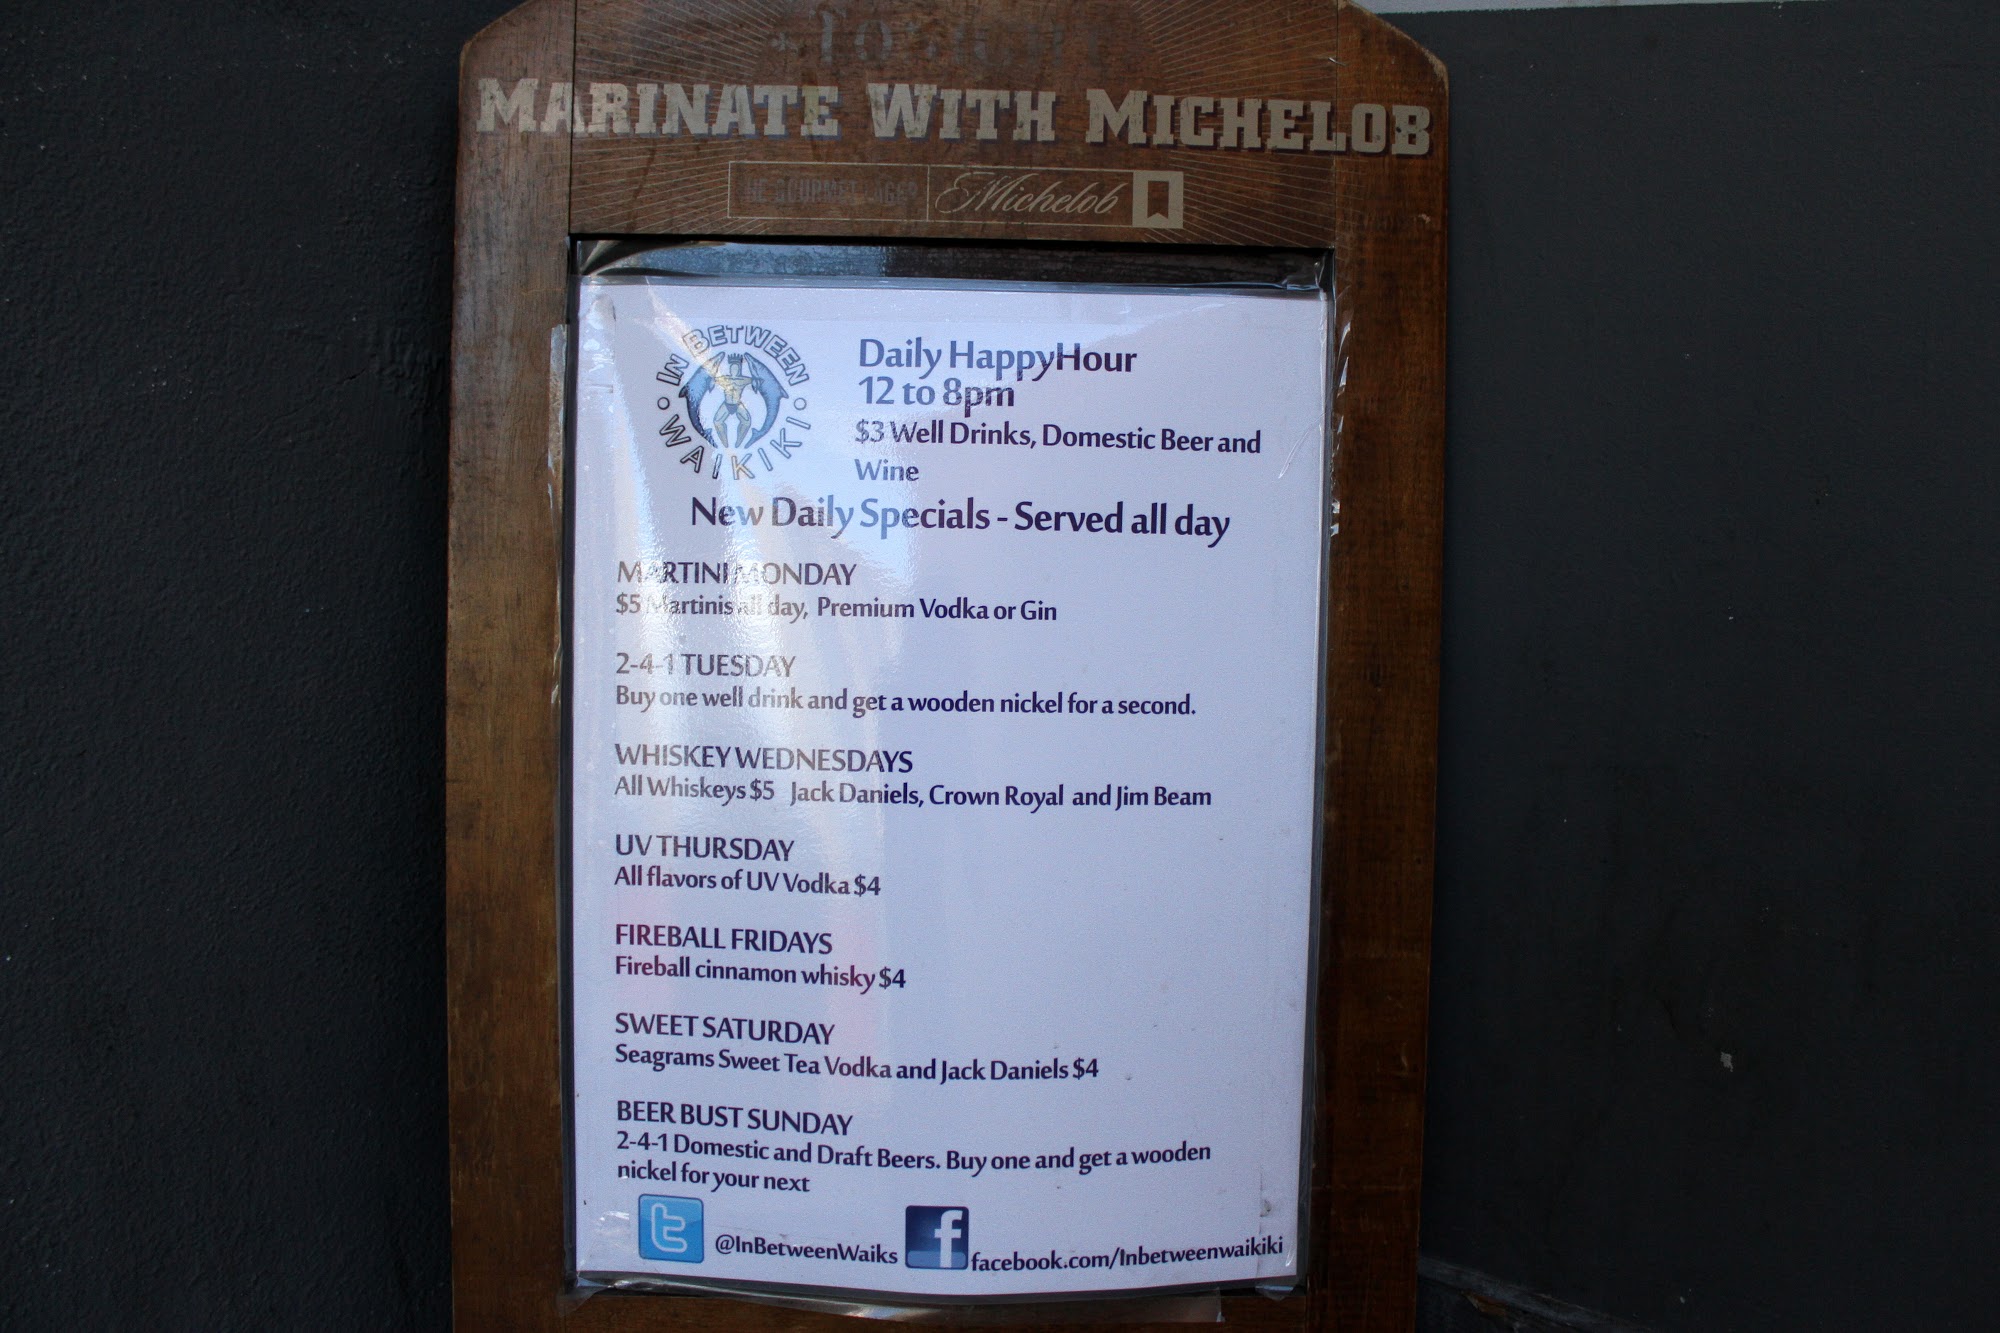 MARINATE WITH MICHELOB
GOURMET LAGER Michelob
IN BETWEEN
WAIKIKI
Daily HappyHour
12 to 8pm
$3 Well Drinks, Domestic Beer and
Wine
New Daily Specials - Served all day
MARTINI MONDAY
$5 Martinis all day, Premium Vodka or Gin
2-4-1 TUESDAY
Buy one well drink and get a wooden nickel for a second.
WHISKEY WEDNESDAYS
All Whiskeys $5 Jack Daniels, Crown Royal and Jim Beam
UV THURSDAY
All flavors of UV Vodka $4
FIREBALL FRIDAYS
Fireball cinnamon whisky $4
SWEET SATURDAY
Seagrams Sweet Tea Vodka and Jack Daniels $4
BEER BUST SUNDAY
2-4-1 Domestic and Draft Beers. Buy one and get a wooden
nickel for your next
@InBetweenWaiks
facebook.com/Inbetweenwaikiki